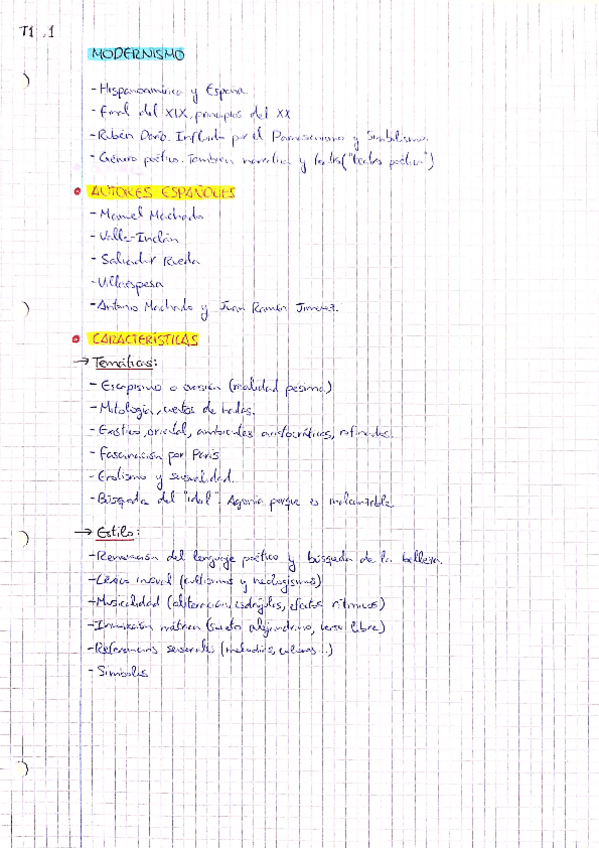 T1.1
MODERNISMO
- Hispanoamérica y España
- Final del XIX, principios del XX
- Rubén Darío. Influido por el Parnasianismo y Simbolismo.
- Género poético. También narrativa y teatro ("teatro poético")
AUTORES ESPAÑOLES
- Manuel Machado
- Valle-Inclán
- Salvador Rueda
- Villaespesa
- Antonio Machado y Juan Ramón Jiménez.
CARACTERÍSTICAS
→ Temáticas:
- Escapismo o evasión (realidad pésima)
- Mitología, cuentos de hadas.
- Exótico, oriental, ambientes aristocráticos, refinados.
- Fascinación por París
- Erotismo y sexualidad.
- Búsqueda del "ideal". Agonía porque es inalcanzable.
→ Estilo:
- Renovación del lenguaje poético y búsqueda de la belleza.
- Léxico inusual (cultismos y neologismos)
- Musicalidad (aliteración, esdrújulas, efectos rítmicos)
- Innovación métrica (soneto alejandrino, verso libre)
- Referencias sensoriales (melodías, colores...)
- Símbolos